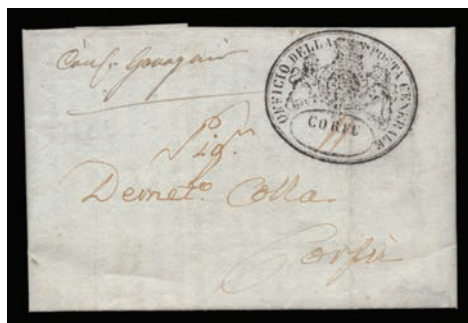 OFFICIO DELLA POSTA GENERALE
CORFU
Sig.r
Demet.o Colla
Corfù